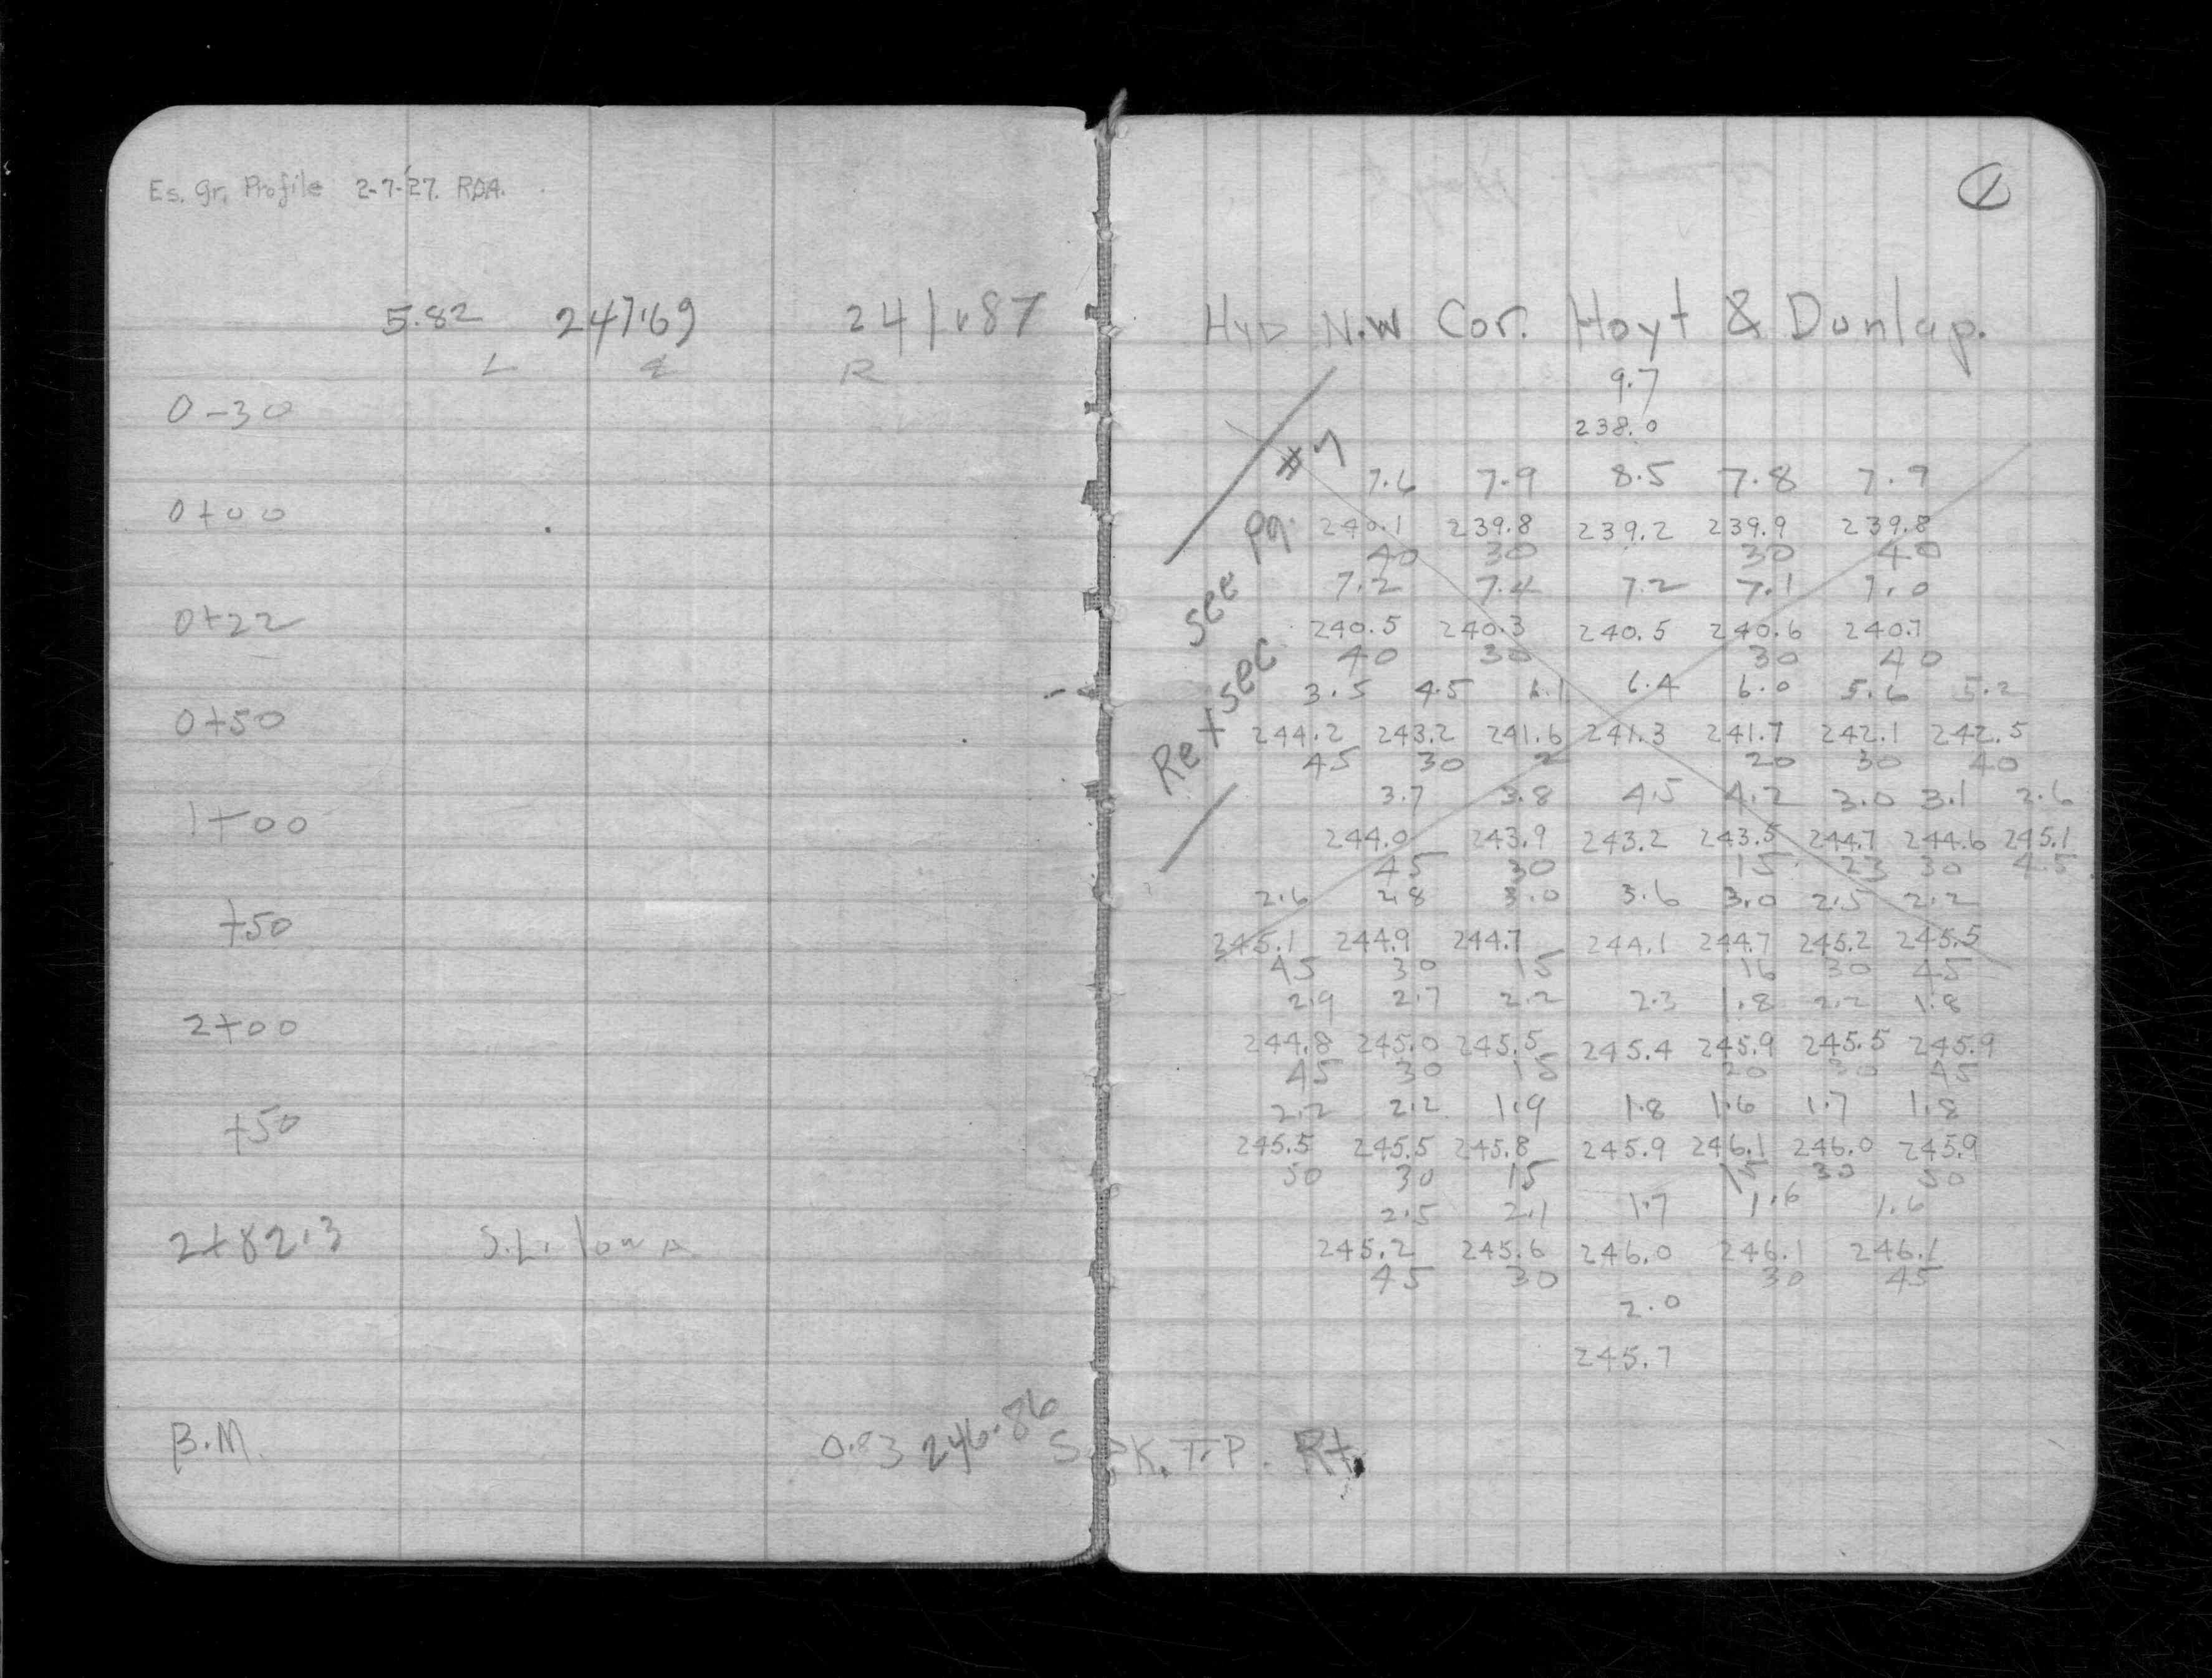 Es. gr. Profile 2-7-'27. RDA.
5.82 247.69 241.87
L ⅊ R
0-30
0+00
0+22
0+50
1+00
+50
2+00
+50
2+82.3 S.L. Iowa
B.M. 0.83 246.86 S.PK. T.P. Rt.
1
Hyd N.W Cor. Hoyt & Dunlap.
9.7
238.0
7.6 7.9 8.5 7.8 7.9
240.1 239.8 239.2 239.9 239.8
40 30 30 40
7.2 7.4 7.2 7.1 7.0
240.5 240.3 240.5 240.6 240.7
40 30 30 40
3.5 4.5 6.1 6.4 6.0 5.6 5.2
244.2 243.2 241.6 241.3 241.7 242.1 242.5
45 30 2 20 30 40
3.7 3.8 4.5 4.2 3.0 3.1 2.6
244.0 243.9 243.2 243.5 244.7 244.6 245.1
45 30 15 23 30 45
2.6 2.8 3.0 3.6 3.0 2.5 2.2
245.1 244.9 244.7 244.1 244.7 245.2 245.5
45 30 15 16 30 45
2.9 2.7 2.2 2.3 1.8 2.2 1.8
244.8 245.0 245.5 245.4 245.9 245.5 245.9
45 30 15 20 30 45
2.2 2.2 1.9 1.8 1.6 1.7 1.8
245.5 245.5 245.8 245.9 246.1 246.0 245.9
50 30 15 15 30 50
2.5 2.1 1.7 1.6 1.6
245.2 245.6 246.0 246.1 246.1
45 30 30 45
2.0
245.7
Ret sec see pg. #7